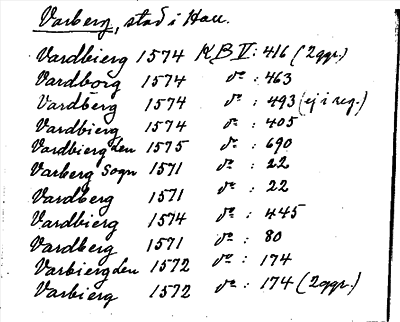 Varberg, stad i Hall.
Vardbierg 1574 KBV: 416 (2 ggr.)
Vardborg 1574 do : 463
Vardberg 1574 do : 493 (ej i reg.)
Vardbierg 1574 do : 405
Vardbierg den 1575 do : 690
Varberg Sogn 1571 do : 22
Vardberg 1571 do : 22
Vardbierg 1574 do : 445
Vardberg 1571 do : 80
Varbierg den 1572 do : 174
Varbierg 1572 do : 174 (2 ggr.)